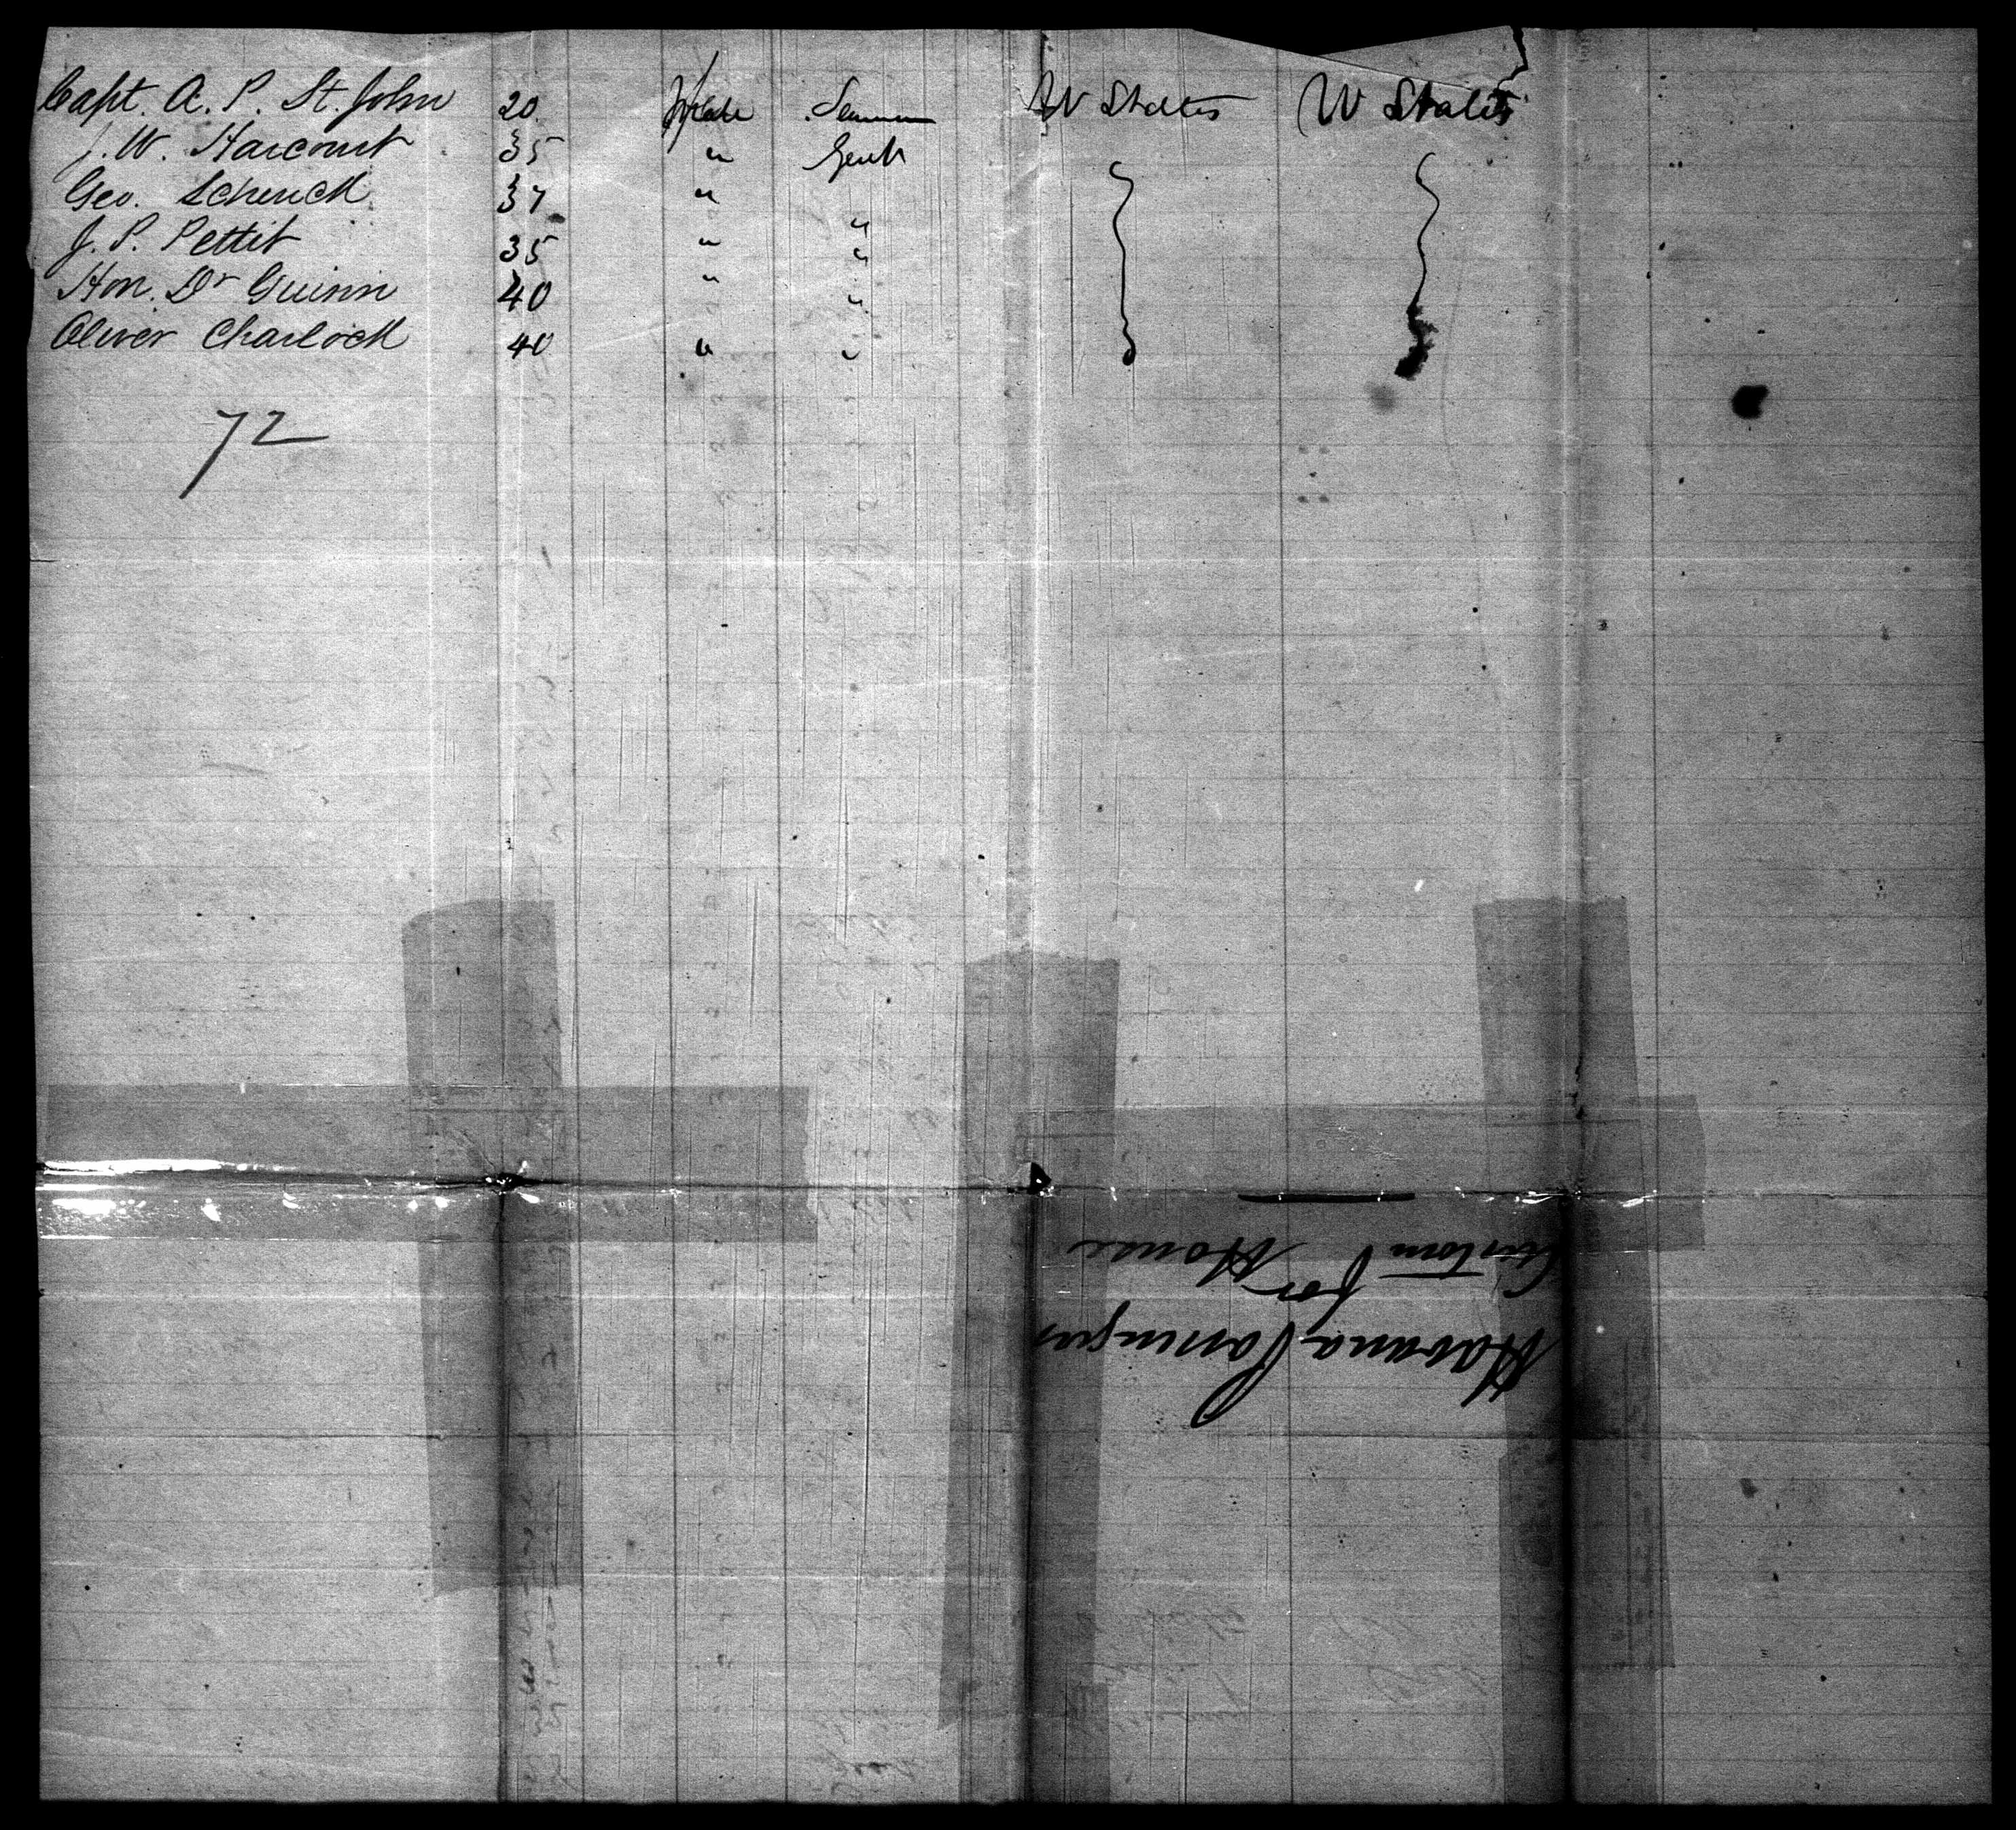 Capt. A. P. St. John 20 Male Seaman U States U States
J. W. Harcourt 35 " Gent
Geo. Schenck 37 " "
J. P. Pettit 35 " "
Hon. Dr Guinn 40 " "
Oliver Charlock 40 " "
72
Havana Passengers
for
Custom House